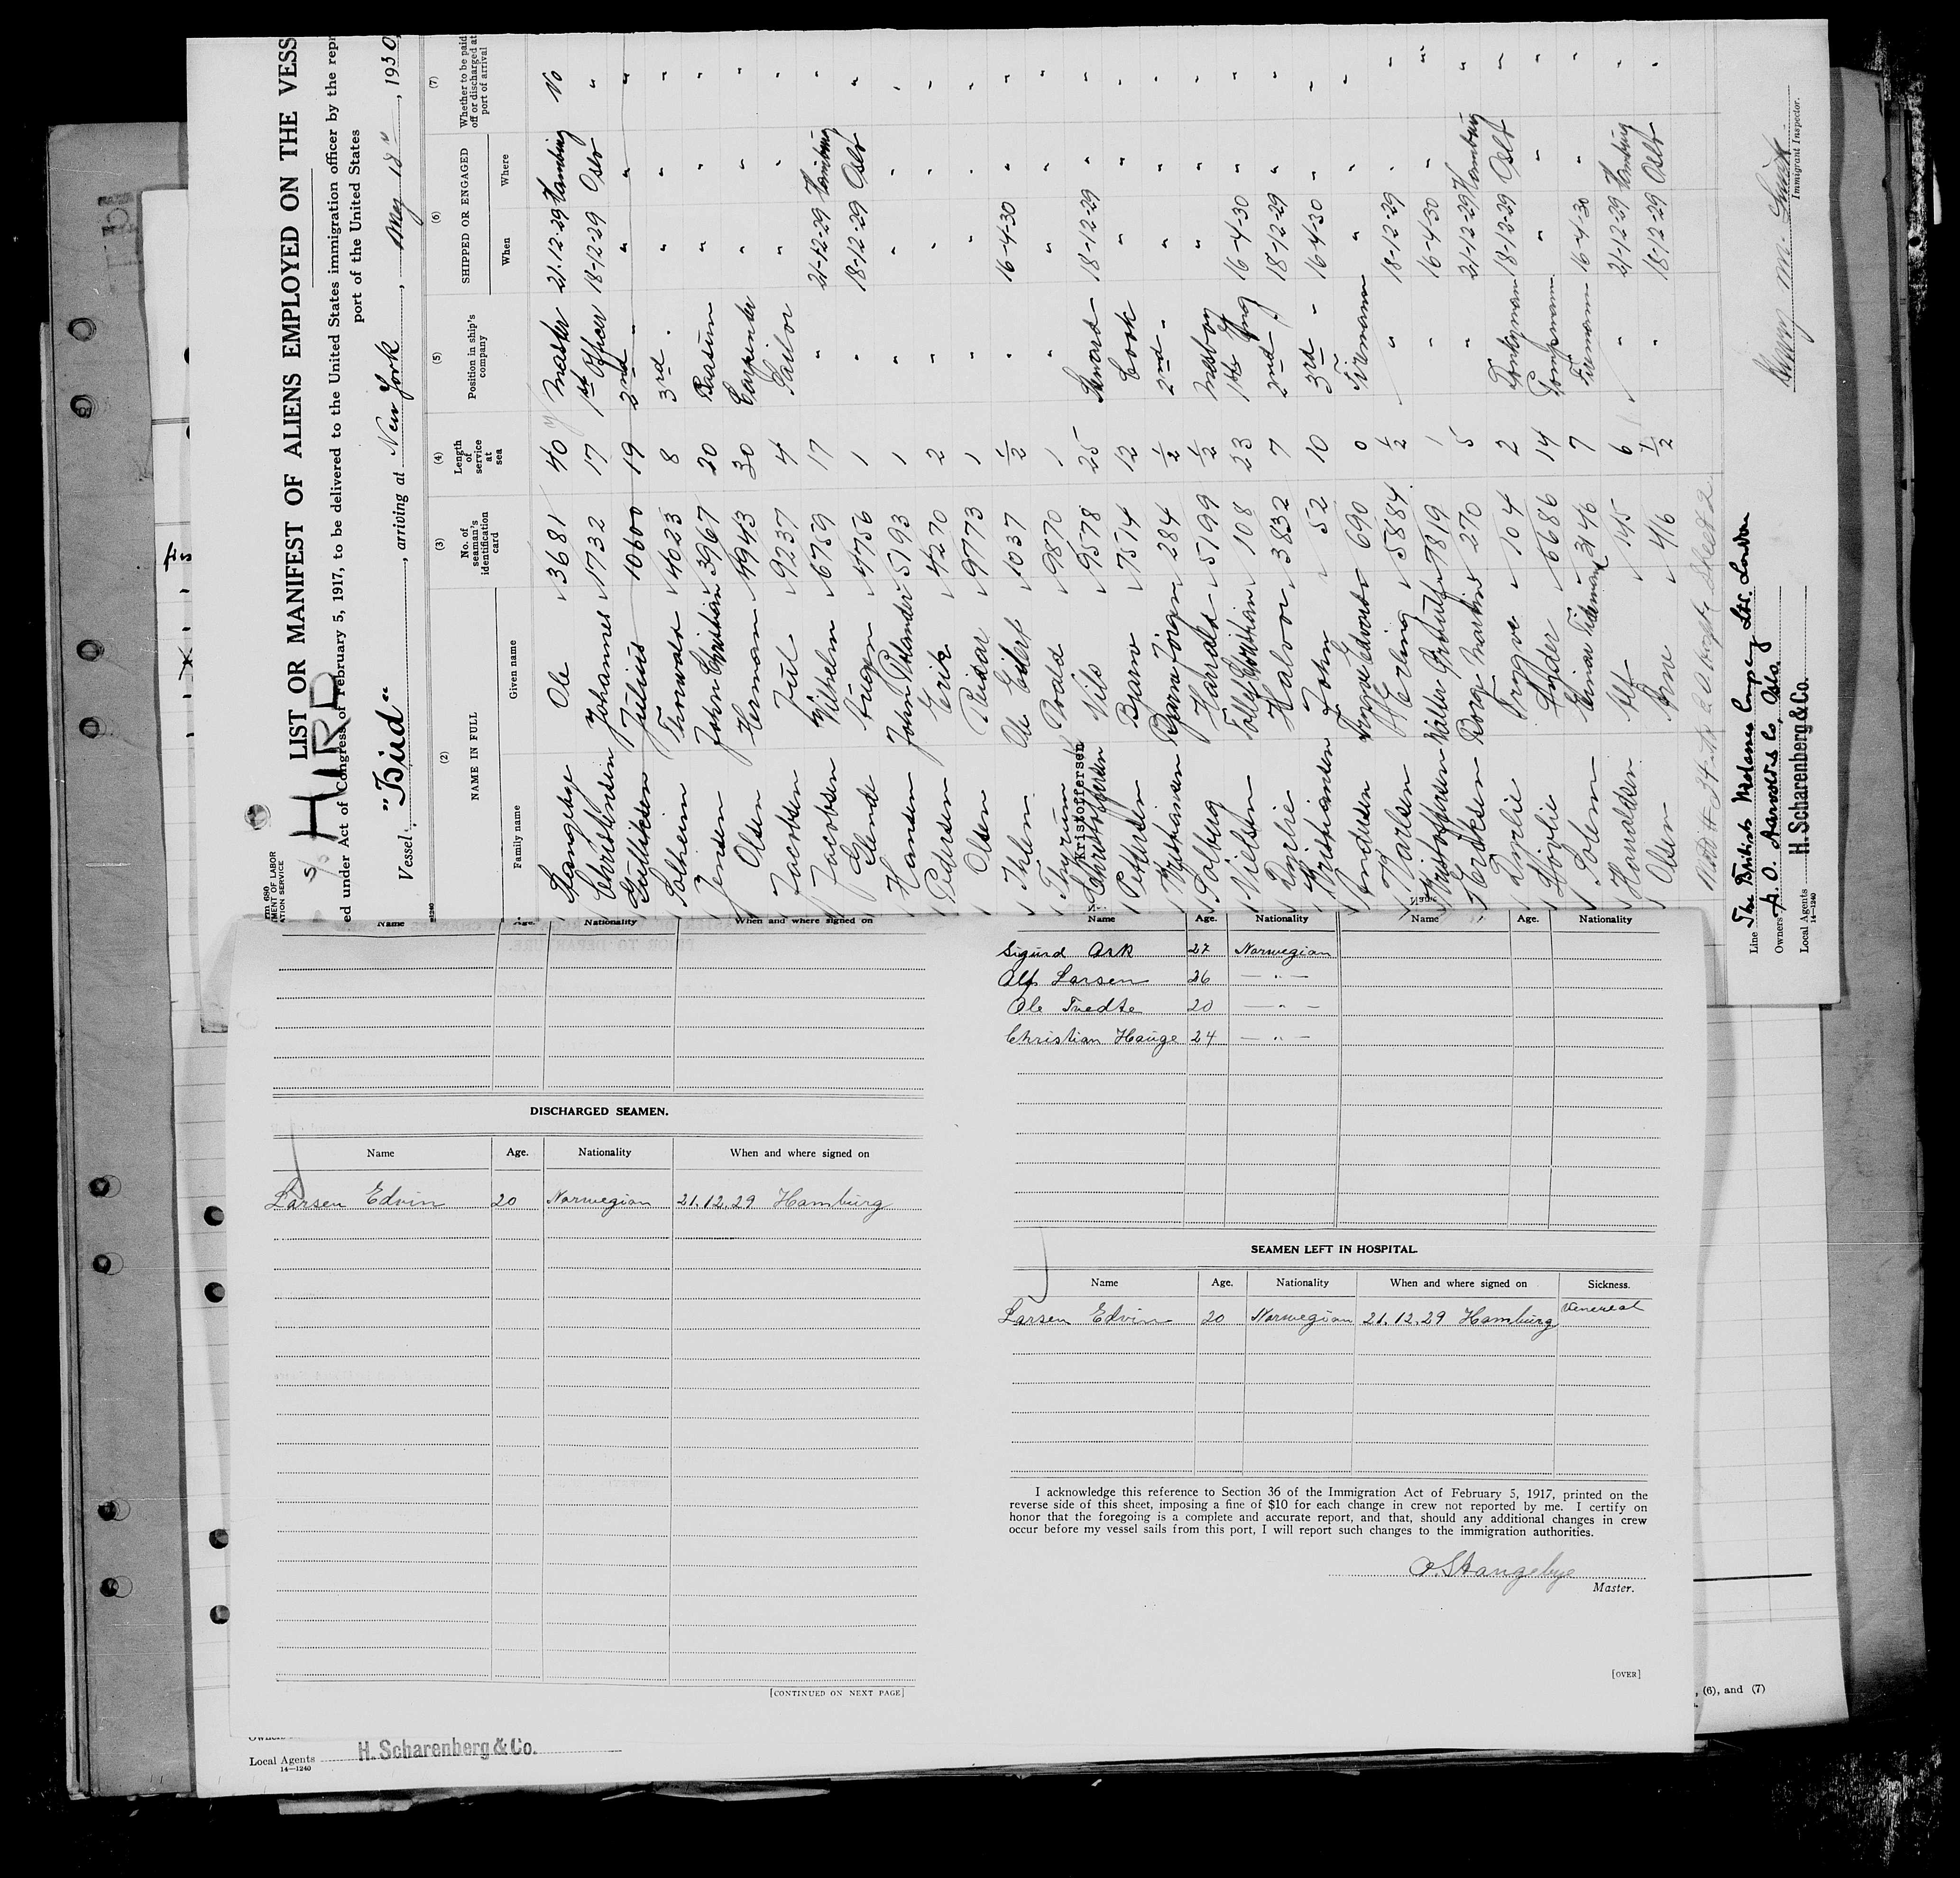 LIST OR MANIFEST OF ALIENS EMPLOYED ON THE VESS
ed under Act of Congress of February 5, 1917, to be delivered to the United States immigration officer by the repr
port of the United States
Vessel , arriving at New York , May 18 , 1930
(2) (3) (4) (5) (6) (7)
NAME IN FULL
Family name Given name
No. of seaman's identification card
Length of service at sea
Position in ship's company
SHIPPED OR ENGAGED
When Where
Whether to be paid off or discharged at port of arrival
Stangebye Ole 3681 40 Master 21-12-29 Hamburg No
Christensen Johannes 1732 17 1st Officer 18-12-29 Oslo "
Gulliksen Julius 10600 19 2nd " " " "
Solheim Thorvald 4023 8 3rd " " " "
Jensen John Christian 3967 20 " " "
Olsen Herman 4943 30 " " "
Jacobsen Juul 9237 4 Sailor " " "
Jacobsen Vilhelm 6759 17 " 21-12-29 Hamburg "
4756 1 " 18-12-29 Oslo "
Hansen 5193 1 " " " "
Pedersen Erik 4270 2 " " " "
Olsen Reidar 9773 1 " " " "
Ihlen Ole 1037 ½ " 16-4-30 " "
9870 1 " " " "
Kristoffersen Nils 9578 25 18-12-29 " "
Pettersen Bjarne 7574 12 Cook " " "
Kristiansen Bjarne Jörgen 284 ½ 2nd " " " "
Solberg Harald 5199 ½ Messboy " " "
Nielsen 108 23 1ste Eng 16-4-30 " "
Halvor 3832 7 2nd " 18-12-29 " "
Kristiansen John 52 10 3rd " 16-4-30 " "
690 0 " " "
Karlsen Erling 5884 ½ " 18-12-29 " "
7819 1 " 16-4-30 " "
Eriksen 270 5 " 21-12-29 Hamburg "
Trygve 104 2 Donkeyman 18-12-29 Oslo "
6686 14 " " "
Solem Einar 3146 7 Firemann 16-4-30 " "
Haraldsen Alf 145 6 " 21-12-29 Hamburg "
Olsen Arne 416 ½ " 18-12-29 Oslo "
Line The British Molasses Company Ltc. London
Owners
Local Agents H. Scharenberg & Co.
14—1240
Immigrant Inspector.
Name Age. Nationality When and where signed on
DISCHARGED SEAMEN.
Name Age. Nationality When and where signed on
Larsen Edvin 20 Norwegian 21.12.29 Hamburg
[CONTINUED ON NEXT PAGE]
Local Agents H. Scharenberg & Co.
14—1240
Name Age. Nationality Name Age. Nationality
Sigurd Ask 27 Norwegian
Alf Larsen 26 — " —
Ole Tvedte 20 — " —
Christian Hauge 24 — " —
SEAMEN LEFT IN HOSPITAL.
Name Age. Nationality When and where signed on Sickness.
Larsen Edvin 20 Norwegian 21.12.29 Hamburg Venereal
I acknowledge this reference to Section 36 of the Immigration Act of February 5, 1917, printed on the
reverse side of this sheet, imposing a fine of $10 for each change in crew not reported by me. I certify on
honor that the foregoing is a complete and accurate report, and that, should any additional changes in crew
occur before my vessel sails from this port, I will report such changes to the immigration authorities.
O. Stangebye
Master.
[OVER]
, (6), and (7)